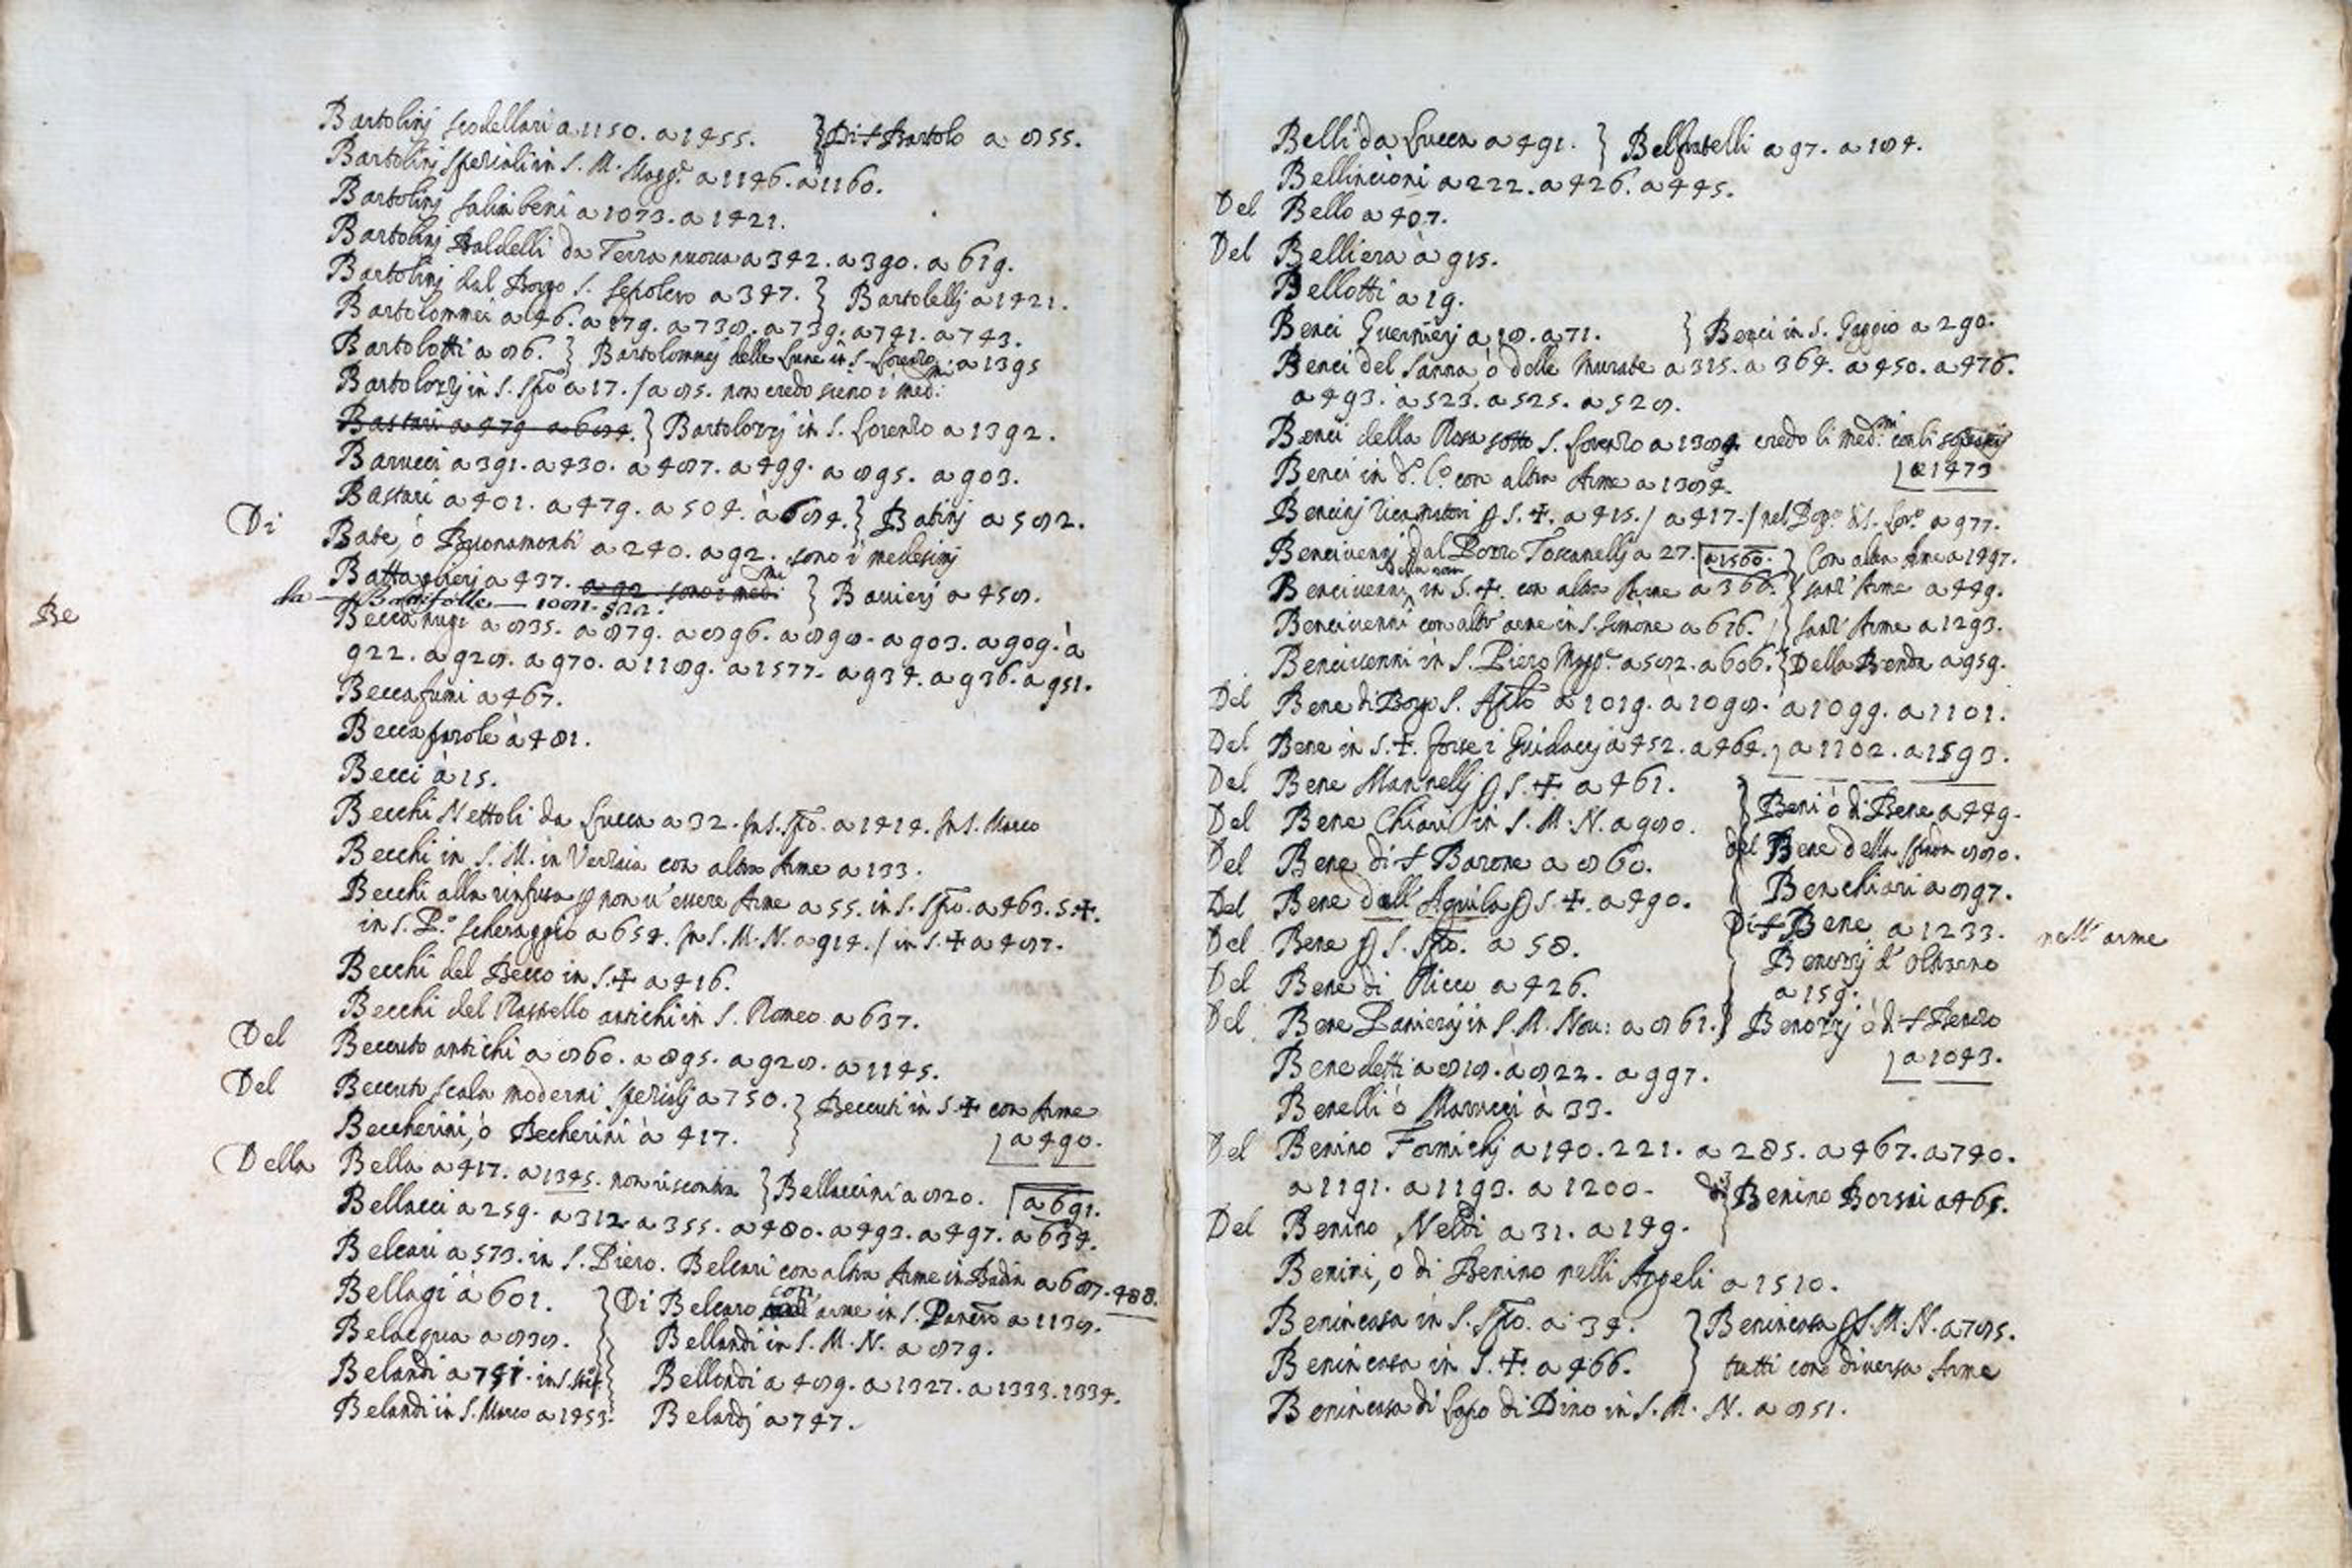 Bartolinj scodellari a 1150. a 1455. } Di s Bartolo a 855.
Bartolinj speziali in S. M. Magg.e a 1146. a 1160.
Bartolinj salimbeni a 1073. a 1421.
Bartolinj Baldelli da Terra nuova a 342. a 390. a 619.
Bartolinj dal Borgo S. Sepolcro a 347. } Bartolellj a 1421.
Bartolommei a 46. a 179. a 738. a 739. a 741. a 743.
Bartolotti a 86. } Bartolommej delle Lune in S. Lorenzo a 1395
Bartolozzj in S. Spo a 17. / a 85. non credo sieno i med:mi
Bastari a 479. a 684. } Bartolozzj in S. Lorenzo a 1392.
Barucci a 391. a 430. a 487. a 499. a 895. a 903.
Bastari a 401. a 479. a 504. à 684. } Batinj a 582.
Di Bate, ò Buonamonti a 240. a 92. sono i medesimj
Battaglierj a 437. a 92. sono i med:mi } Bavierj a 458.
da Battifolle 1081. 522.
Be
Beccanugi a 835. a 879. a 896. a 898. a 903. a 909. à
922. a 928. a 970. a 1189. a 1577. a 934. a 936. a 951.
Beccafumi a 467.
Beccaparole à 481.
Becci à 15.
Becchi Nettoli da Lucca a 32. In S. Spo. a 1414. In S. Marco
Becchi in S. M. in Verzaia con altra Arme a 133.
Becchi alla rinfusa p non v'essere Arme a 55. in S. Spo. a 463. S. +.
in S. P.o Scheraggio a 654. In S. M. N. a 914. / in S. + a 487.
Becchi del Becco in S. + a 416.
Becchi del Rastrello antichi in S. Romeo a 637.
Del Beccuto antichi a 860. a 895. a 928. a 1145.
Del Beccuto scala moderni spezialj a 750. } Beccuti in S. + con Arme
Beccherini, ò Becherini à 417. a 490.
Della Bella a 417. a 1345. non riscontra } Bellaccini a 820. a 691.
Bellacci a 259. a 312. a 355. a 480. a 493. a 497. a 634.
Belcari a 573. in S. Piero. Belcari con altra Arme in Badia a 687. 488.
Bellagi à 601. } Di Belcaro con arme in S. Panc.o a 1138.
Belacqua a 838. Bellandi in S. M. N. a 879.
Belandi a 741. in S. Stef. Bellondi a 489. a 1327. a 1333. 1334.
Belandi in S. Marco a 1453. Belardj a 747.
Belli da Lucca a 491. } Belfratelli a 97. a 184.
Bellincioni a 222. a 426. a 445.
Del Bello a 407.
Del Belliera à 915.
Bellotti a 19.
Benci Guernierj a 18. a 71. } Benci in S. Gaggio a 290.
Benci del Sanna, ò delle Murate a 315. a 364. a 450. a 476.
a 493. a 523. a 525. a 528.
Benci della Rosa sotto S. Lorenzo a 1384. credo li med:mi con li
Benci in d.o l.o con altra Arme a 1384. a 1473
Bencinj ricamatori p S. +. a 415. / a 417. / nel Borg.o di S. Lor.o a 977.
Bencivenzj dal Pozzo Toscanellj a 27. a 1560. } Con altra Arme a 1497.
Bencivenni in S. +. con altra Arme a 368. } senz' Arme a 449.
Bencivenni con altr' arme in S. Simone a 676. } senz' Arme a 1293.
Bencivenni in S. Piero Magg.e a 582. a 606. } Della Benda a 959.
Del Bene di Borgo S. Apsto a 1019. a 1098. a 1099. a 1101.
Del Bene in S. +. forse i Guidaccj a 452. a 464. a 1102. a 1593.
Del Bene Mannellj p S. +. a 461.
Del Bene Chiari in S. M. N. a 980. } Beni ò di Bene a 449.
Del Bene di s Barone a 860. del Bene della Spada 880.
Del Bene dall' Aquila p S. +. a 490. Benchiari a 897.
Del Bene p S. Spo. a 58. Di s Bene a 1233. nell' arme
Del Bene di Ricco a 426. Benozzj d' Oltrarno
a 159.
Del Bene Panierj in S. M. Nov: a 861. } Benozzj ò di s Benozo
Benedetti a 818. à 822. a 997. a 1043.
Benelli ò Marucci à 33.
Del Benino Formichj a 140. 221. a 285. a 467. a 740.
a 1191. a 1193. a 1200. di Benino Borsai a 465.
Del Benino Neldi a 31. a 149.
Benini, o di Benino nelli Appeli a 1510.
Benincasa in S. Spo. a 34. } Benincasa p S. M. N. a 785.
Benincasa in S. +. a 466. tutti con diversa Arme
Benincasa di Lapo di Dino in S. M. N. a 851.